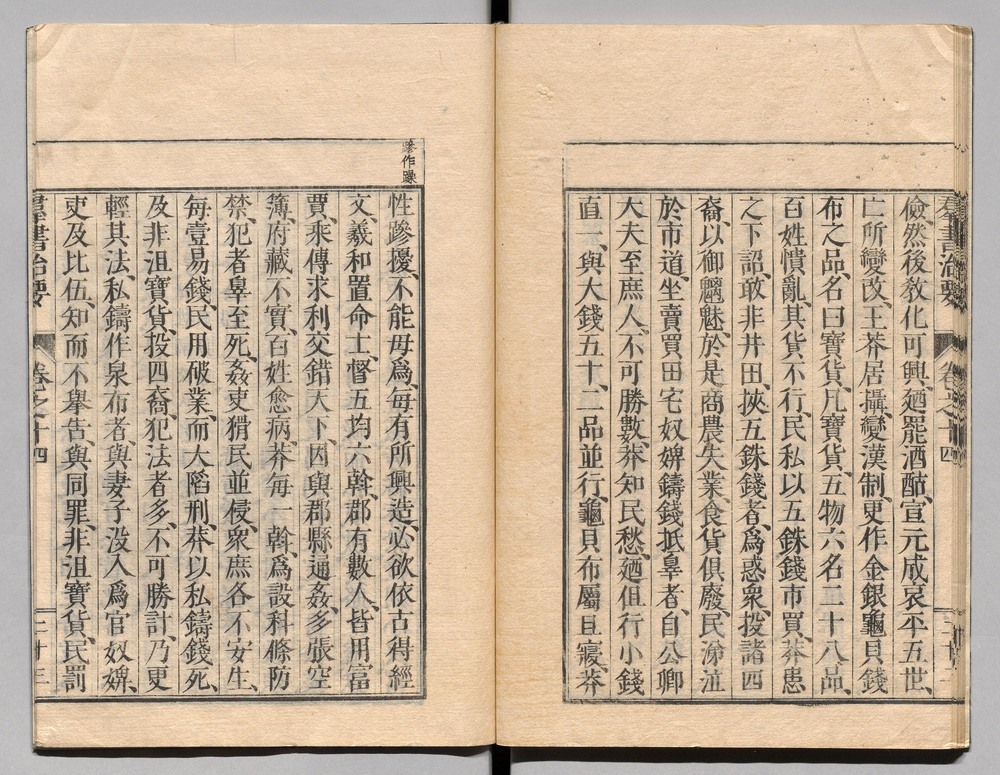 羣書治要 卷之十四 二十二
儉、然後敎化可興、廼罷酒酤、宣元成哀平五世、
亡所變改、王莽居攝、變漢制、更作金銀龜貝錢
布之品、名曰寶貨、凡寶貨、五物六名二十八品、
百姓憒亂、其貨不行、民私以五銖錢市買、莽患
之下詔、敢非井田、挾五銖錢者、爲惑衆、投諸四
裔、以御魑魅、於是商農失業、食貨俱廢、民涕泣
於市道、坐賣買田宅奴婢鑄錢抵辠者、自公卿
大夫至庶人、不可勝數、莽知民愁、廼但行小錢
直一、與大錢五十、二品並行、龜貝布屬且寢、莽
蹘作躁
性躁擾、不能毋爲、每有所興造、必欲依古得經
文、羲和置命士、督五均六斡、郡有數人、皆用富
賈、乘傳求利、交錯天下、因與郡縣通姦、多張空
簿、府藏不實、百姓愈病、莽每一斡、爲設科條防
禁、犯者辠至死、姦吏猾民並侵、衆庶各不安生、
每壹易錢、民用破業、而大陷刑、莽以私鑄錢死、
及非沮寶貨、投四裔、犯法者多、不可勝計、乃更
輕其法、私鑄作泉布者、與妻子沒入爲官奴婢、
吏及比伍、知而不舉告、與同罪、非沮寶貨、民罰
羣書治要 卷之十四 二十三